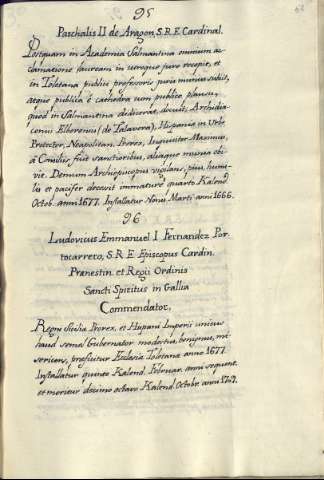 95
Paschalis II de Aragon, S.R.E Cardinal.
Postquam in Academia Salmantina omnium ac-
clamatione lauream in utroque jure recepit, et
in Toletana publici professoris juris munia subiit,
atque publica è cathedra cum publico plausu,
quod in Salmantina didicerat, docuit; Archidia-
conus Elborensis (de Talavera), Hispaniæ in Urbe
Protector, Neapolitan. Prorex, Inquisitor Maximus,
à Consiliis fuit sanctioribus, aliaque munia obi-
vit. Demum Archiepiscopus vigilans, pius, humi-
lis et pacifer decessit immaturè quarto Kalend.
Octob. anni 1677. Installatur Nonis Marti anni 1666.
96
Ludovicus Emmanuel I Fernandez Por-
tocarrero, S.R.E Episcopus Cardin.
Prænestin. et Regii Ordinis
Sancti Spiritus in Gallia
Commendator,
Regni Siciliæ Prorex, et Hispani Imperii
haud semel Gubernator modestus, benignus, mi-
sericors, præficitur Ecclesiæ Toletanæ anno 1677.
Installatur Kalend. Februar. anni sequent.
et moritur decimo octavo Kalend. Octobr. anni 1709.